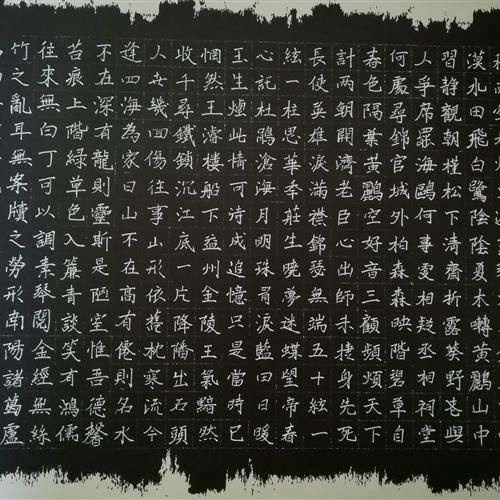 漠水田飛白鷺陰陰夏木囀黃鸝山中
習静觀朝槿松下清齋折露葵野老與
人爭席罷海鷗何事更相疑丞相祠堂
何處尋錦官城外柏森森映階碧草自
春色隔葉黃鸝空好音三顧頻煩天下
計兩朝開濟老臣心出師未捷身先死
長使英雄淚滿襟錦瑟無端五十絃一
絃一柱思華秊莊生曉夢迷蝶望帝春
心託杜鵑滄海月明珠有淚藍田日暖
玉生煙此情可待成追憶只是當時已
惘然王濬樓船下益州金陵王氣黯然
收千尋鐵鎖沉江底一片降旛出石頭
人世幾回傷往事山形依舊枕寒流今
逢四海為家日山不在高有僊則名水
不在深有龍則靈斯是陋室惟吾德馨
苔痕上階綠草色入簾青談笑有鴻儒
往來無白丁可以調素琴閱金經無絲
竹之亂耳無案牘之勞形南陽諸葛廬